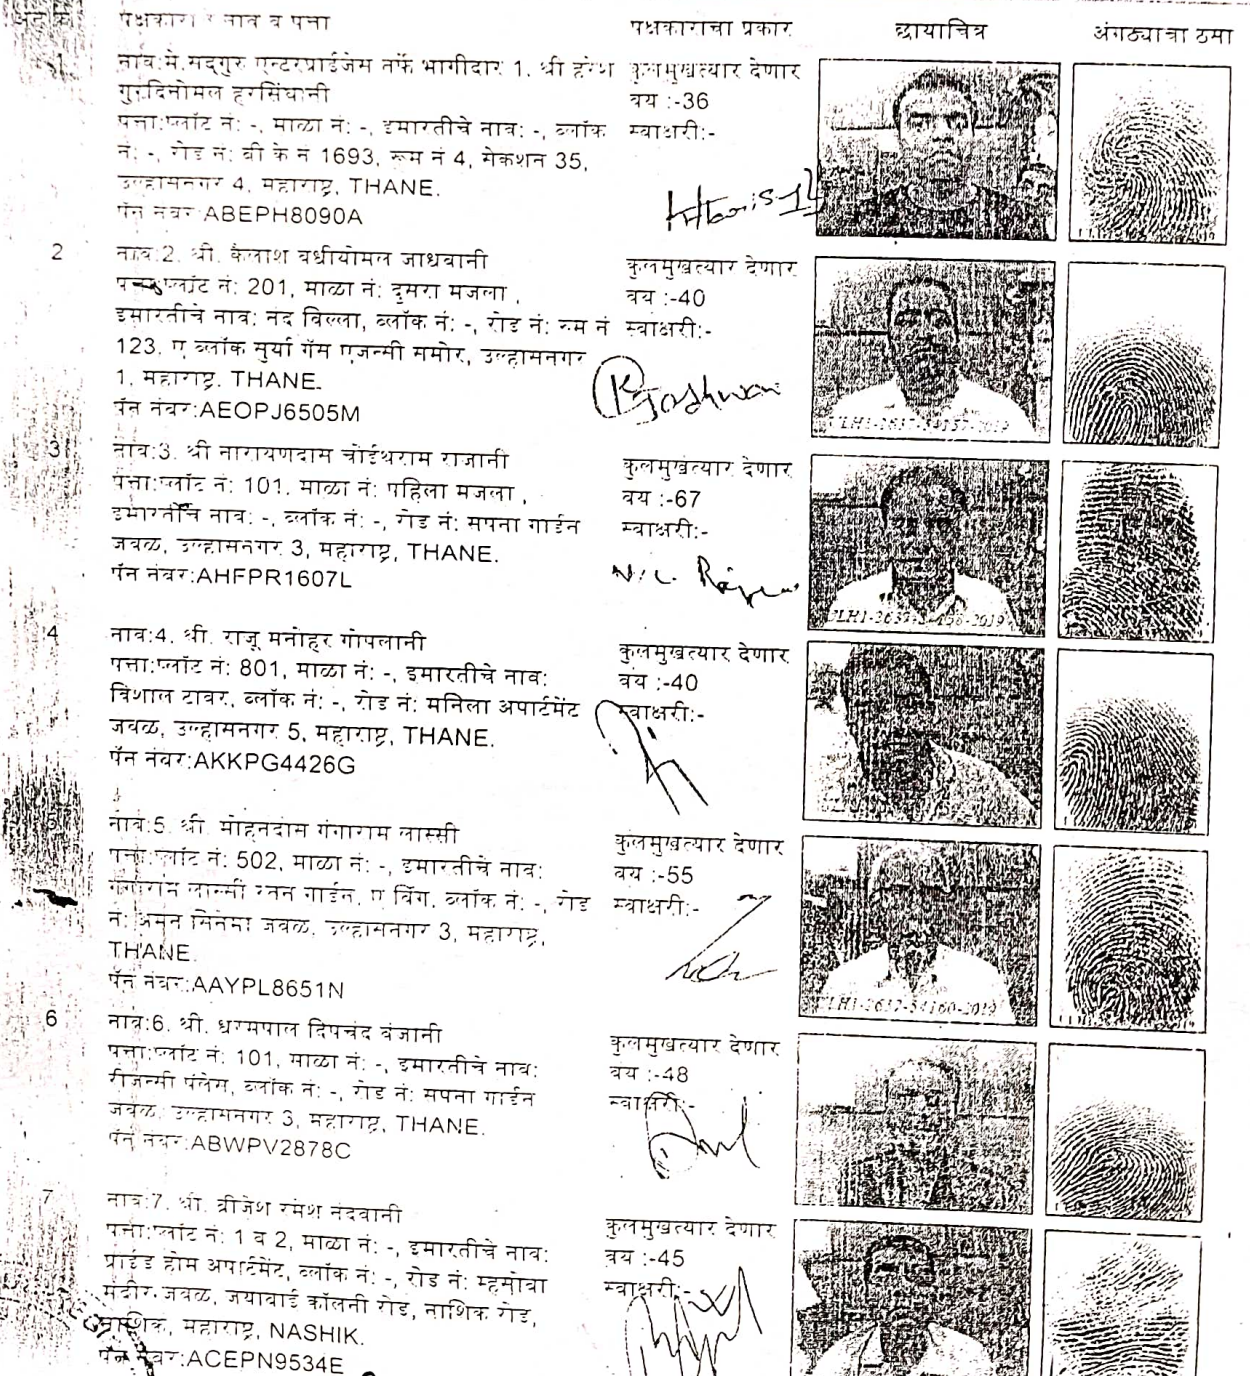 पक्षकाराचे नाव व पत्ता पक्षकाराचा प्रकार छायाचित्र अंगठ्याचा ठसा
1 नाव:मे.सद्गुरु एन्टरप्राईजेस तर्फे भागीदार 1. श्री हरेश
गुरदिनोमल हरसिंघानी
पत्ता:प्लॉट नं: -, माळा नं: -, इमारतीचे नाव: -, ब्लॉक
नं: -, रोड नं: बी के नं 1693, रूम नं 4, सेकशन 35,
उल्हासनगर 4, महाराष्ट्र, THANE.
पॅन नंबर:ABEPH8090A
कुलमुखत्यार देणार
वय :-36
स्वाक्षरी:-
2 नाव:2. श्री. कैलाश वधीयोमल जाधवानी
पत्ता:प्लॉट नं: 201, माळा नं: दुसरा मजला ,
इमारतीचे नाव: नंद विल्ला, ब्लॉक नं: -, रोड नं: रूम नं
123, ए ब्लॉक सुर्या गॅस एजन्सी समोर, उल्हासनगर
1, महाराष्ट्र. THANE.
पॅन नंबर:AEOPJ6505M
कुलमुखत्यार देणार
वय :-40
स्वाक्षरी:-
3 नाव:3. श्री नारायणदास चोईथराम राजानी
पत्ता:प्लॉट नं: 101, माळा नं: पहिला मजला ,
इमारतीचे नाव: -, ब्लॉक नं: -, रोड नं: सपना गार्डन
जवळ, उल्हासनगर 3, महाराष्ट्र, THANE.
पॅन नंबर:AHFPR1607L
कुलमुखत्यार देणार
वय :-67
स्वाक्षरी:-
4 नाव:4. श्री. राजू मनोहर गोपलानी
पत्ता:प्लॉट नं: 801, माळा नं: -, इमारतीचे नाव:
विशाल टावर, ब्लॉक नं: -, रोड नं: मनिला अपार्टमेंट
जवळ, उल्हासनगर 5, महाराष्ट्र, THANE.
पॅन नंबर:AKKPG4426G
कुलमुखत्यार देणार
वय :-40
स्वाक्षरी:-
5 नाव:5. श्री. मोहनदास गंगाराम लास्सी
पत्ता:प्लॉट नं: 502, माळा नं: -, इमारतीचे नाव:
गंगाराम लास्सी रतन गार्डन, ए विंग, ब्लॉक नं: -, रोड
नं: अमन सिनेमा जवळ, उल्हासनगर 3, महाराष्ट्र,
THANE.
पॅन नंबर:AAYPL8651N
कुलमुखत्यार देणार
वय :-55
स्वाक्षरी:-
6 नाव:6. श्री. धरमपाल दिपचंद वंजानी
पत्ता:प्लॉट नं: 101, माळा नं: -, इमारतीचे नाव:
रीजन्सी पॅलेस, ब्लॉक नं: -, रोड नं: सपना गार्डन
जवळ, उल्हासनगर 3, महाराष्ट्र, THANE.
पॅन नंबर:ABWPV2878C
कुलमुखत्यार देणार
वय :-48
स्वाक्षरी:-
7 नाव:7. श्री. ब्रीजेश रमेश नंदवानी
पत्ता:प्लॉट नं: 1 व 2, माळा नं: -, इमारतीचे नाव:
प्राईड होम अपार्टमेंट, ब्लॉक नं: -, रोड नं: म्हसोबा
मंदीर जवळ, जयाबाई कॉलनी रोड, नाशिक रोड,
नाशिक, महाराष्ट्र, NASHIK.
पॅन नंबर:ACEPN9534E
कुलमुखत्यार देणार
वय :-45
स्वाक्षरी:-